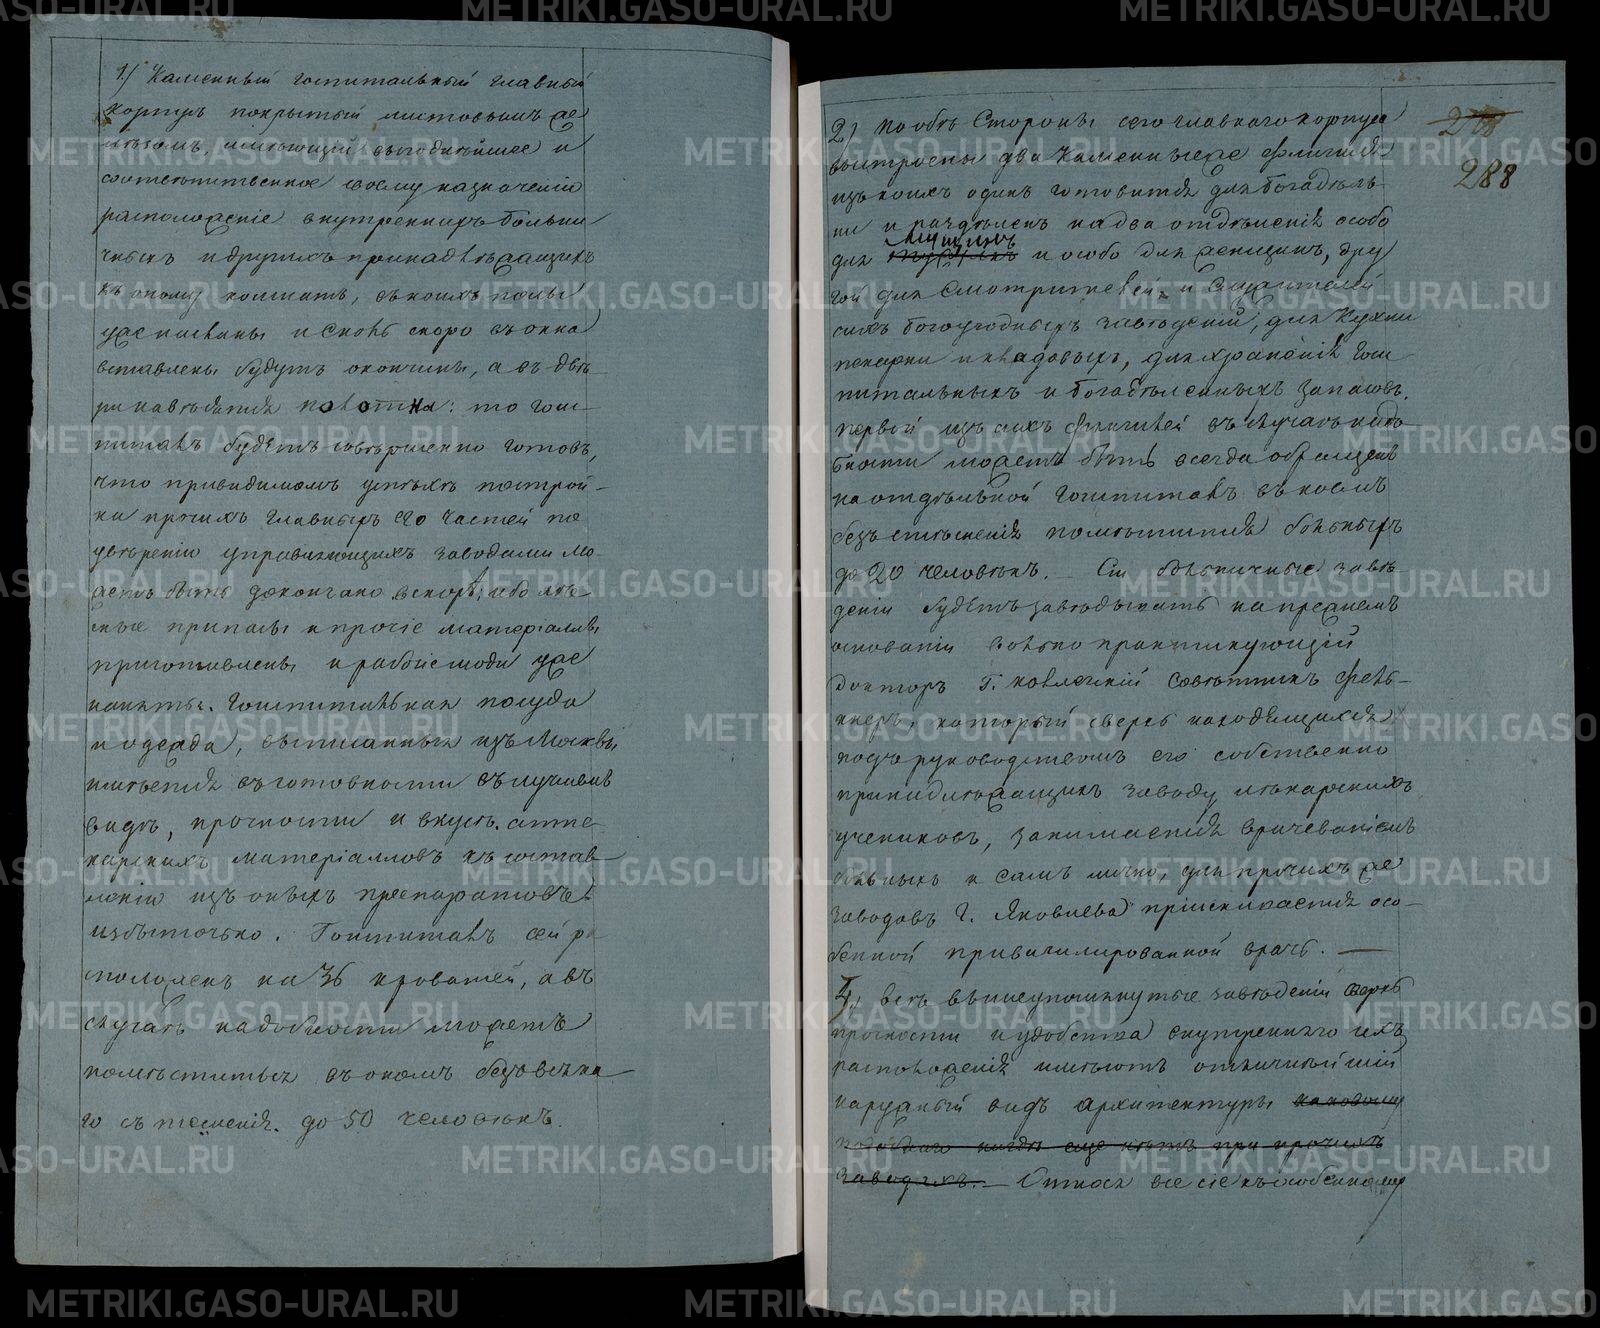 1.) Каменный гошпитальный главный
корпусъ покрытый листовымъ же
лѣзомъ, имѣющій выгоднѣйшее и
соотвѣтственное своему назначенію
расположеніе внутреннихъ больни
чныхъ и другихъ принадлѣжащихъ
къ оному комнатъ, въ коихъ полы
уже насланы и сколь скоро въ окна
вставлены будутъ окончины, а въ две
ри навѣсятся полотна: то гош-
питаль будетъ совѣршенно готовъ,
что привидимомъ успѣхѣ построй-
ки прочихъ главныхъ его частей по
увѣренію управляющихъ заводами мо-
жетъ быть докончано вскорѣ, ибо
припасы и прочіе матеріаллы
приготовлены и рабочіе люди уже
наняты. Гошпитальная посуда
и одежда, выписанныя изъ Москвы,
имѣется въ готовности въ лучшемъ
видѣ, прочности и вкусѣ. аппте-
карскихъ матеріалловъ къ состав-
ленію изъ оныхъ препаратовъ
избыточно. Гошпиталь сей ра
сположенъ на 36 кроватей, а въ
случаѣ надобности можетъ
помѣститься въ ономъ безъ всяка
го стѣсненія до 50 человѣкъ.
2) по обѣ Стороны сего главнаго корпуса
выстроены два каменные же флигиля
изъ коихъ одинъ готовится для богадѣль-
ни и раздѣленъ на два отдѣленія особо
мущинъ
для и особо для женщинъ, дру
гой для Смотрителей и Служителей
сихъ богоугодныхъ заведений, для кухни
пекарни и кладовыхъ, для храненія гош
питальныхъ и богадѣленныхъ запасовъ.
первой изъ сихъ флигилей въ случаѣ надо
бности можетъ быть всегда обращенъ
на отдѣльной гошпиталь въ коемъ
безъ стѣсненія помѣстится больныхъ
до 20 человѣкъ. — Си больничные завѣ-
деніи будетъ завѣдывать на прежнемъ
основаніи вольно практикующій
докторъ Г. колежскій Совѣтникъ Фель-
кнеръ, который сверхъ находящихся
подъ руководствомъ его собственно
принадлѣжащихъ заводу лѣкарскихъ
учениковъ, занимается врачеваніемъ
больныхъ и самъ лично, для прочихъ же
заводовъ Г. Яковлева пріискивается осо-
бенной привилилированной врачь. —
4) всѣ вышеупомянутые завѣденіи сверхъ
прочности и удобства внутренняго ихъ
расположенія имѣютъ отличнѣйшій
наружный видъ архитектуры каковому
подобнаго нигдѣ еще нѣтъ при прочихъ
заводахъ. — Относя все сіе къ особенному
288